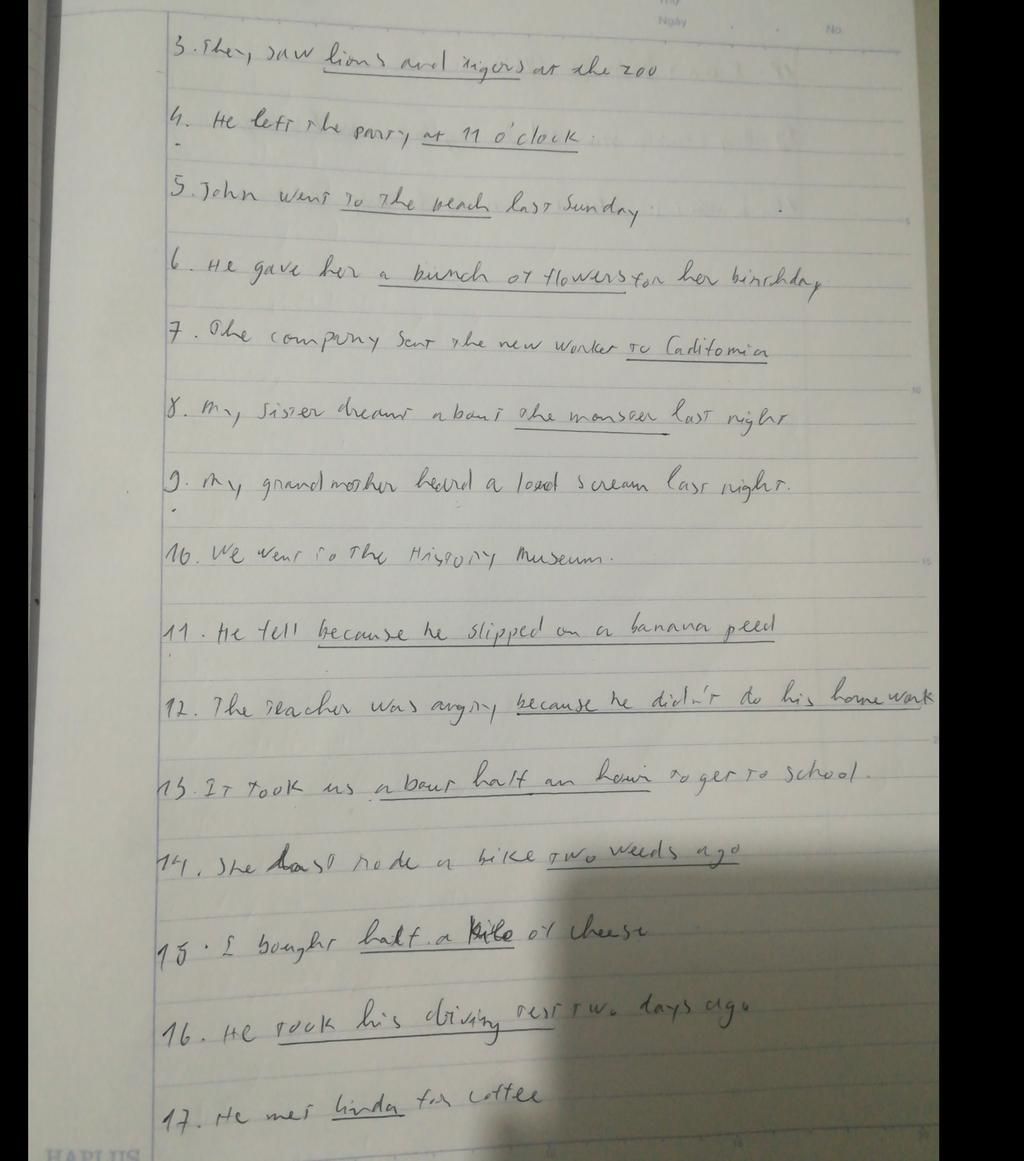 Ngày
No.
3. They saw lions and tigers at the zoo
4. He left the party at 11 o'clock.
5. John went to the beach last Sunday.
6. He gave her a bunch of flowers for her birthday
7. The company sent the new worker to California
8. My sister dreamt about the monster last night
9. My grandmother heard a loud scream last night.
10. We went to the History Museum.
11. He fell because he slipped on a banana peed
12. The teacher was angry because he didn't do his homework
13. It took us about half an hour to get to school.
14. She last rode a bike two weeds ago
15. I bought half a kilo of cheese
16. He took his driving test two days ago
17. He met linda for coffee
HAPLUS